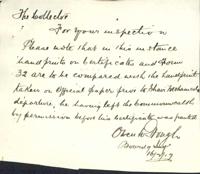 The Collector
For your inspection
Please note that in this instance
handprints on Certificate and Form
32 are to be compared with the handprint
taken on Official paper prior to
departure, he having left the Commonwealth
by permission before his Certificate was granted